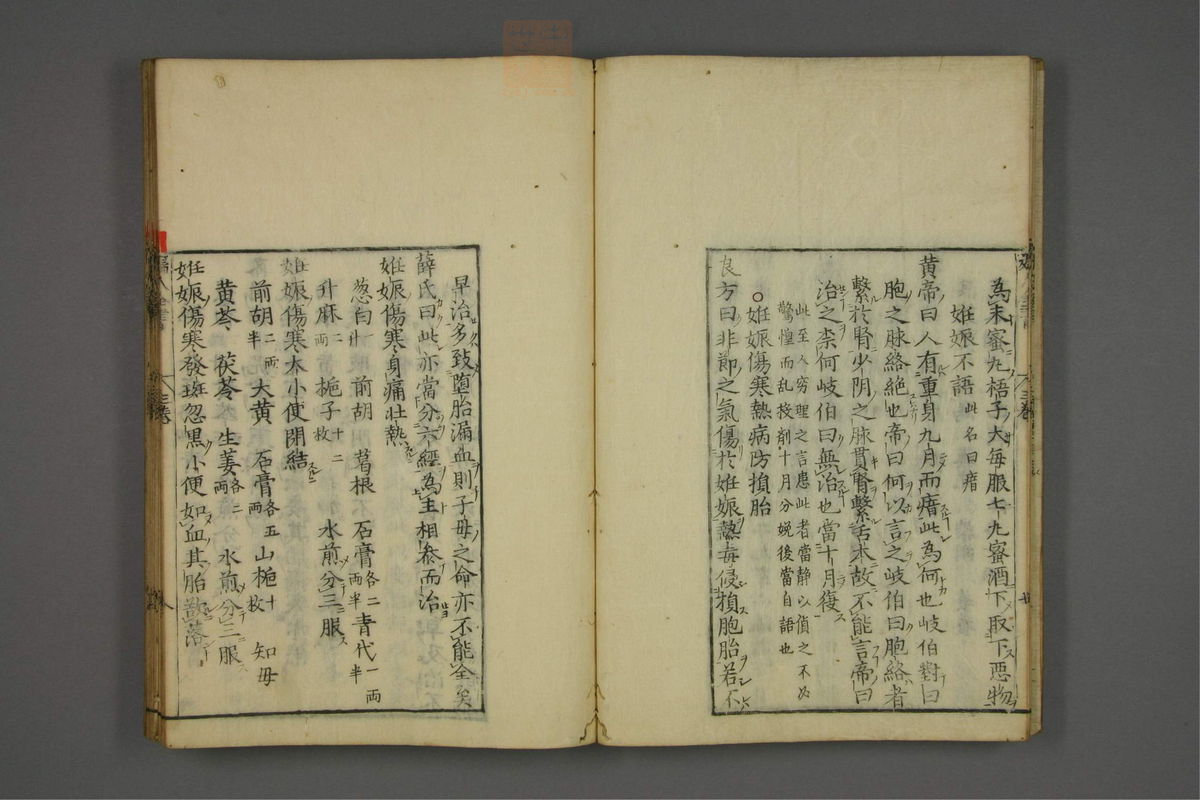 為末蜜丸梧子大每服七丸蜜酒下取下悪物
妊娠不語 此名曰瘖
黄帝曰人有重身九月而瘖此為何也岐伯對曰
胞之脉絡絶也帝曰何以言之岐伯曰胞絡者
繫於腎少阴之脉貫腎繫舌本故不能言帝曰
治之柰何岐伯曰無治也當十月復
此至人穷理之言患此者當静以偵之不必
驚惶而乱投剤十月分娩後當自語也
○妊娠傷寒熱病防損胎
良方曰非節之氣傷於妊娠熱毒侵損胞胎若不
早治多致堕胎漏血則子母之命亦不能全矣
薛氏曰此亦當分六經為主相叅而治
妊娠傷寒身痛壮熱
葱白 前胡 葛根 石膏各二両半 青代一両半
升麻二両 梔子十二枚 水煎分三服
妊娠傷寒大小便閉結
前胡二両半 大黄 石膏各五両 山梔十枚 知母
黄芩 茯苓 生姜各二両 水煎分三服
妊娠傷寒發斑忽黒小便如血其胎欲落